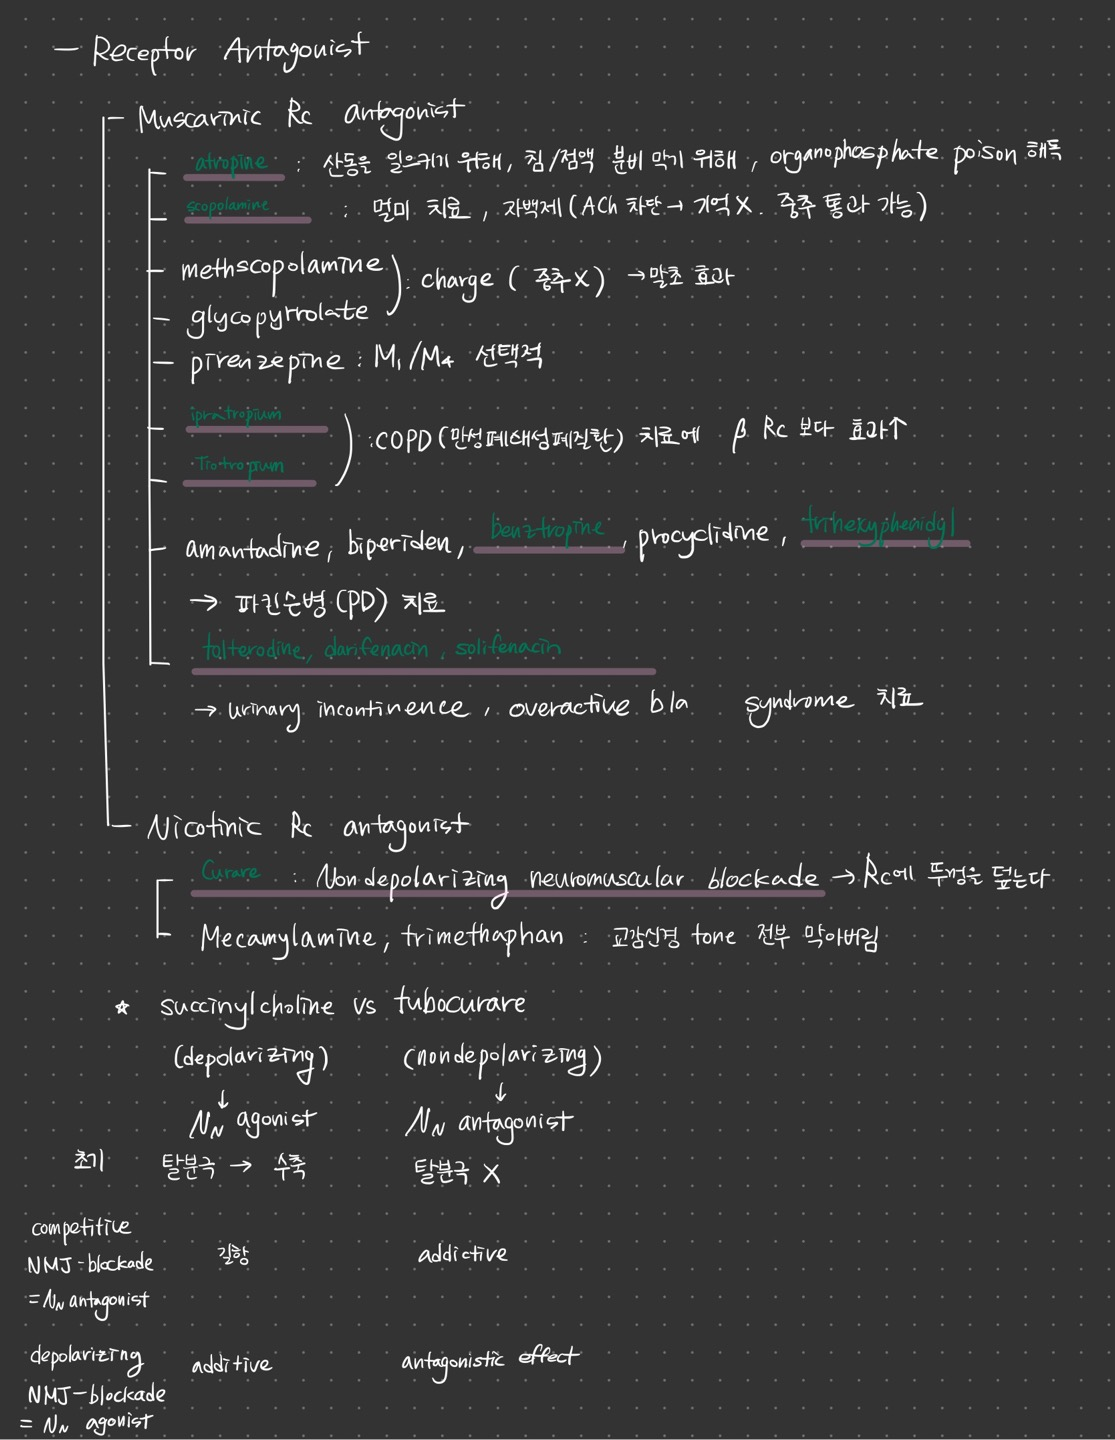 - Receptor Antagonist
- Muscarinic Rc antagonist
- atropine : 산동을 일으키기 위해, 침/점액 분비 막기 위해, organophosphate poison 해독
- scopolamine : 멀미 치료, 자백제 (ACh 차단→ 기억 X. 중추 통과 가능)
- methscopolamine
: charge ( 중추X) →말초 효과
- glycopyrrolate
- pirenzepine : M₁/M₄ 선택적
- ipratropium
:COPD(만성폐쇄성폐질환) 치료에 β Rc 보다 효과↑
- Tiotropium
- amantadine, biperiden, benztropine, procyclidine, trihexyphenidyl
→ 파킨슨병 (PD) 치료
- tolterodine, darifenacin, solifenacin
→ urinary incontinence, overactive bla syndrome 치료
- Nicotinic Rc antagonist
- Curare : Non depolarizing neuromuscular blockade → Rc에 뚜껑을 덮는다
- Mecamylamine, trimethaphan : 교감신경 tone 전부 막아버림
☆ succinylcholine vs tubocurare
(depolarizing) (nondepolarizing)
↓ ↓
N_N agonist N_N antagonist
초기 탈분극 → 수축 탈분극 X
competitive
NMJ-blockade 길항 addictive
= N_N antagonist
depolarizing additive antagonistic effect
NMJ-blockade
= N_N agonist